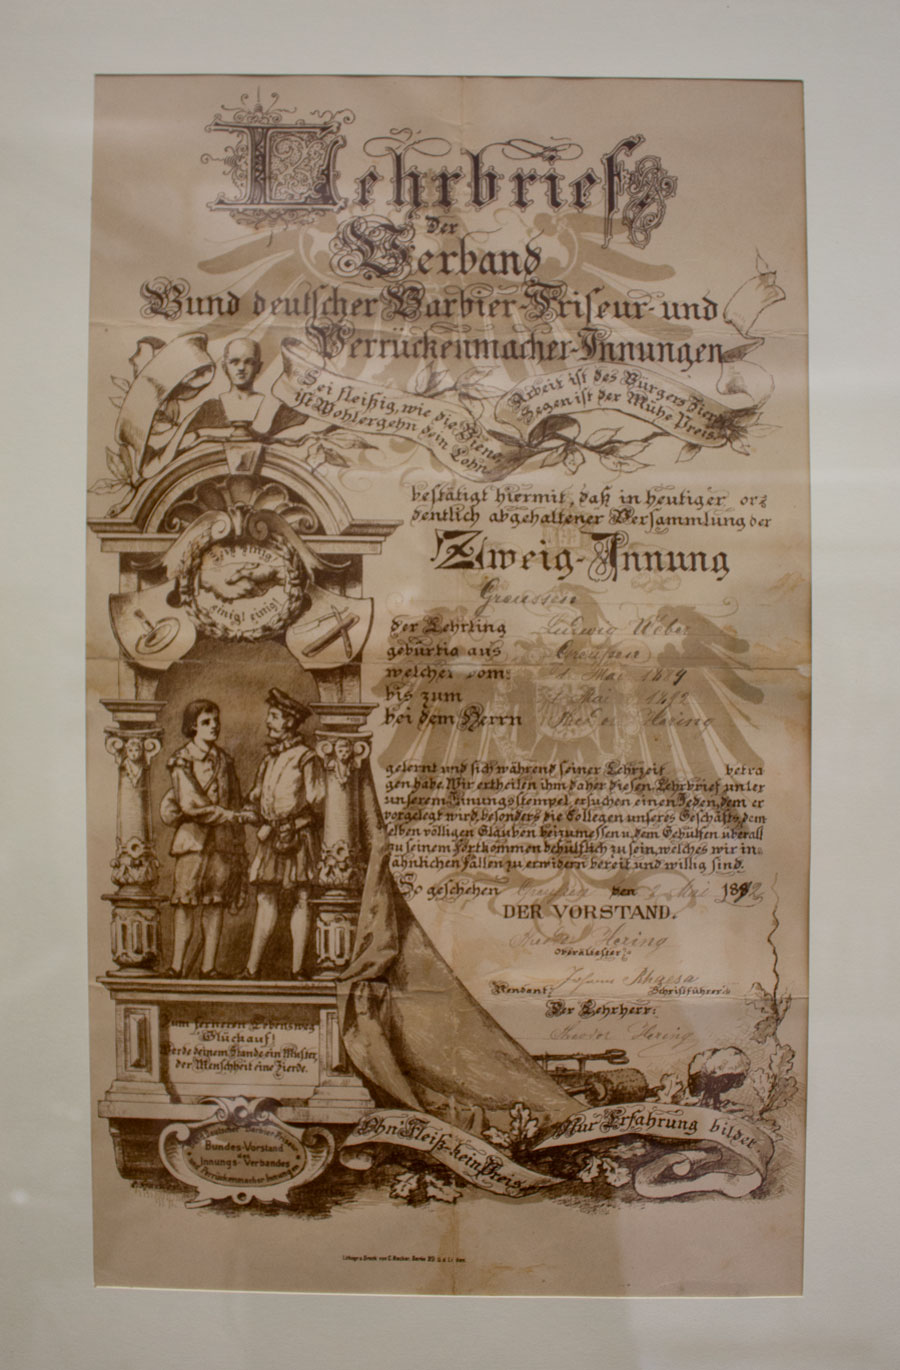 Lehrbrief
Der
Verband
Bund deutscher Barbier-Friseur- und
Perrückenmacher-Innungen
Sei fleißig, wie die Biene,
ist Wohlergehn dein Lohn
Arbeit ist des Bürgers Zierde
Segen ist der Mühe Preis.
bestätigt hiermit, daß in heutiger or=
dentlich abgehaltener Versammlung der
Zweig-Innung
Greussen
Seig einig!
einig! einig!
der Lehrling Ludwig Weber
gebürtig aus Greußen
welcher vom: 1. Mai 1889
bis zum Mai 1892
bei dem Herrn Hering
gelernt und sich während seiner Lehrzeit betra
gen habe. Wir ertheilen ihm daher diesen Lehrbrief unter
unserem Innungsstempel ersuchen einen Jeden, dem er
vorgelegt wird, besonders die Collegen unseres Geschäfts, dem
selben völligen Glauben beizumessen u. dem Gehülfen überall
zu seinem Fortkommen behülflich zu sein, welches wir in=
ähnlichen Fällen zu erwidern bereit und willig sind.
So geschehen den Mai 1892
DER VORSTAND.
Hering
Oberältester:
Rendant: Schriftführer:
Der Lehrherr:
Theodor Hering
Zum ferneren Lebensweg
Glückauf!
Werde deinem Stande ein Muster,
der Menschheit eine Zierde.
Bundes-Vorstand
des
Innungs-Verbandes
Perrückenmacher Innungen
Ohn' Fleiß-kein Preis.
Nur Erfahrung bildet
Lithogr. u. Druck von C. Becher, Berlin